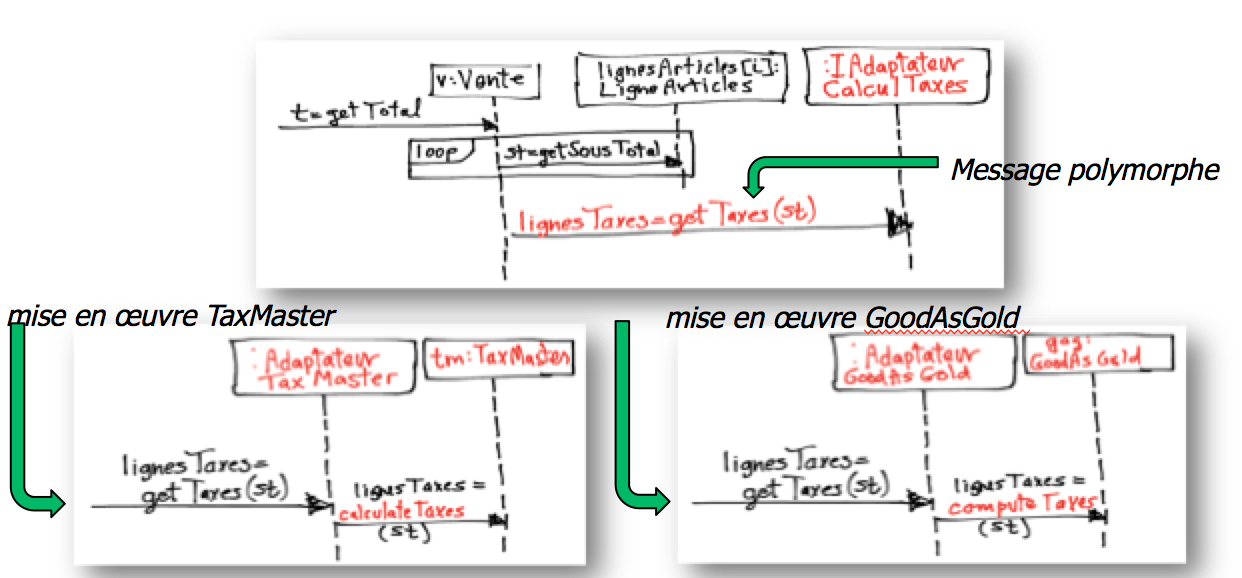 v:Vente
lignesArticles[i]:
LigneArticles
:IAdaptateur
Calcul Taxes
t=getTotal
loop
st=getSousTotal
Message polymorphe
lignesTaxes=getTaxes(st)
mise en œuvre TaxMaster
:Adaptateur
Tax Master
tm:TaxMaster
lignesTaxes=
getTaxes(st)
lignesTaxes=
calculateTaxes
(st)
mise en œuvre GoodAsGold
:Adaptateur
GoodAsGold
gag:
GoodAsGold
lignesTaxes=
getTaxes(st)
lignesTaxes=
computeTaxes
(st)